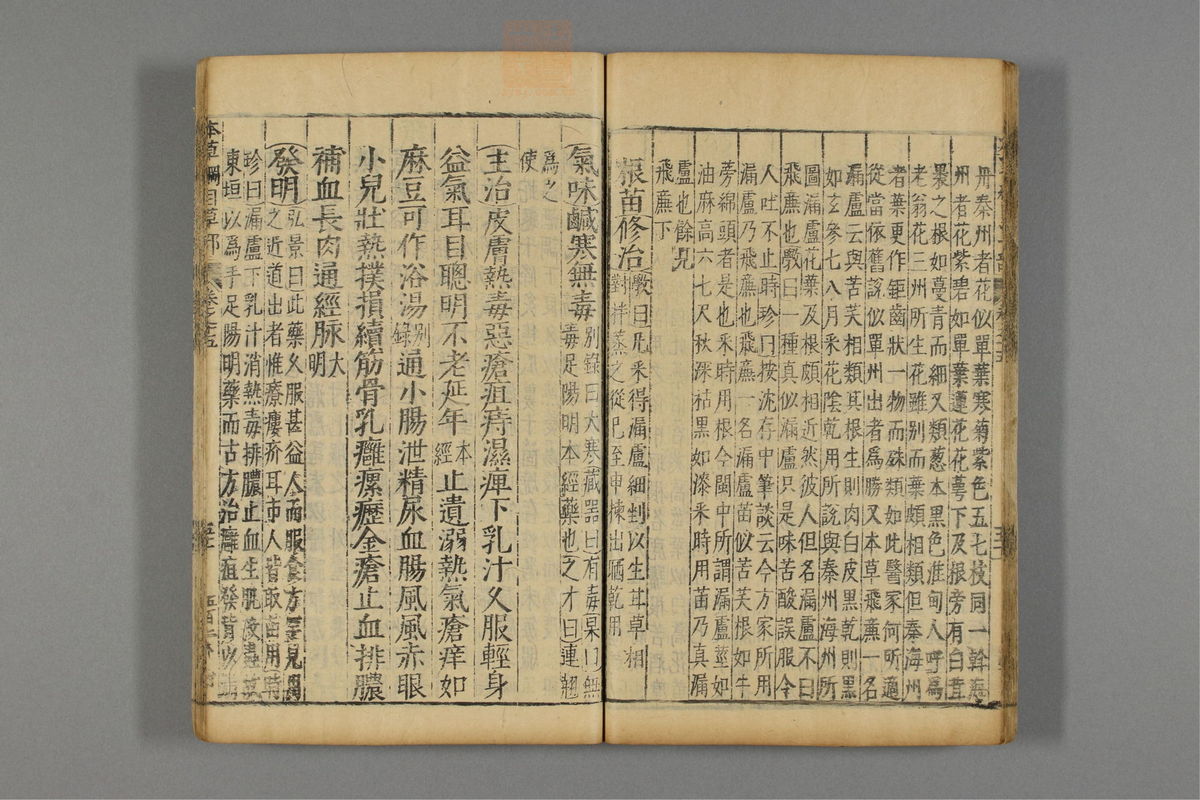 丹秦州者花似單葉寒菊紫色五七枝同一幹海
州者花紫碧如單葉蓮花花萼下及根旁有白茸
裹之根如蔓青而細又類葱本黑色淮甸人呼爲
老翁花三州所生花雖别而葉頗相類但秦海州
者葉更作鋸齒狀一物而殊類如此醫家何所適
從當依舊説似單州出者爲勝又本草飛廉一名
漏盧云與苦芙相類其根生則肉白皮黑乾則黑
如玄參七八月采花陰乾用所説與秦州海州所
圖漏盧花葉及根頗相近然彼人但名漏盧不曰
飛廉也斆曰一種真似漏盧只是味苦酸誤服令
人吐不止時珍曰按沈存中筆談云今方家所用
漏盧乃飛廉也飛廉一名漏盧苗似苦芙根如牛
蒡綿頭者是也采時用根今閩中所謂漏盧莖如
油麻高六七尺秋深枯黑如漆采時用苗乃真漏
盧也餘見
飛廉下
根苗修治
斆曰凡采得漏盧細剉以生甘草相
對拌蒸之從巳至申揀出晒乾用
氣味鹹寒無毒
别錄曰大寒藏器曰有毒杲曰無
毒足陽明本經藥也之才曰連翹
爲之
使
主治皮膚熱毒惡瘡疽痔濕痺下乳汁久服輕身
益氣耳目聰明不老延年本經止遺溺熱氣瘡痒如
麻豆可作浴湯别錄通小腸泄精尿血腸風風赤眼
小兒壯熱撲損續筋骨乳癰瘰癧金瘡止血排膿
補血長肉通經脉大明
發明
弘景曰此藥久服甚益人而服食方罕見用
之近道出者惟療瘻疥耳市人皆取苗用時
珍曰漏盧下乳汁消熱毒排膿止血生肌殺蟲故
東垣以爲手足陽明藥而古方治癰疽發背以漏
本草綱目草部
卷十五